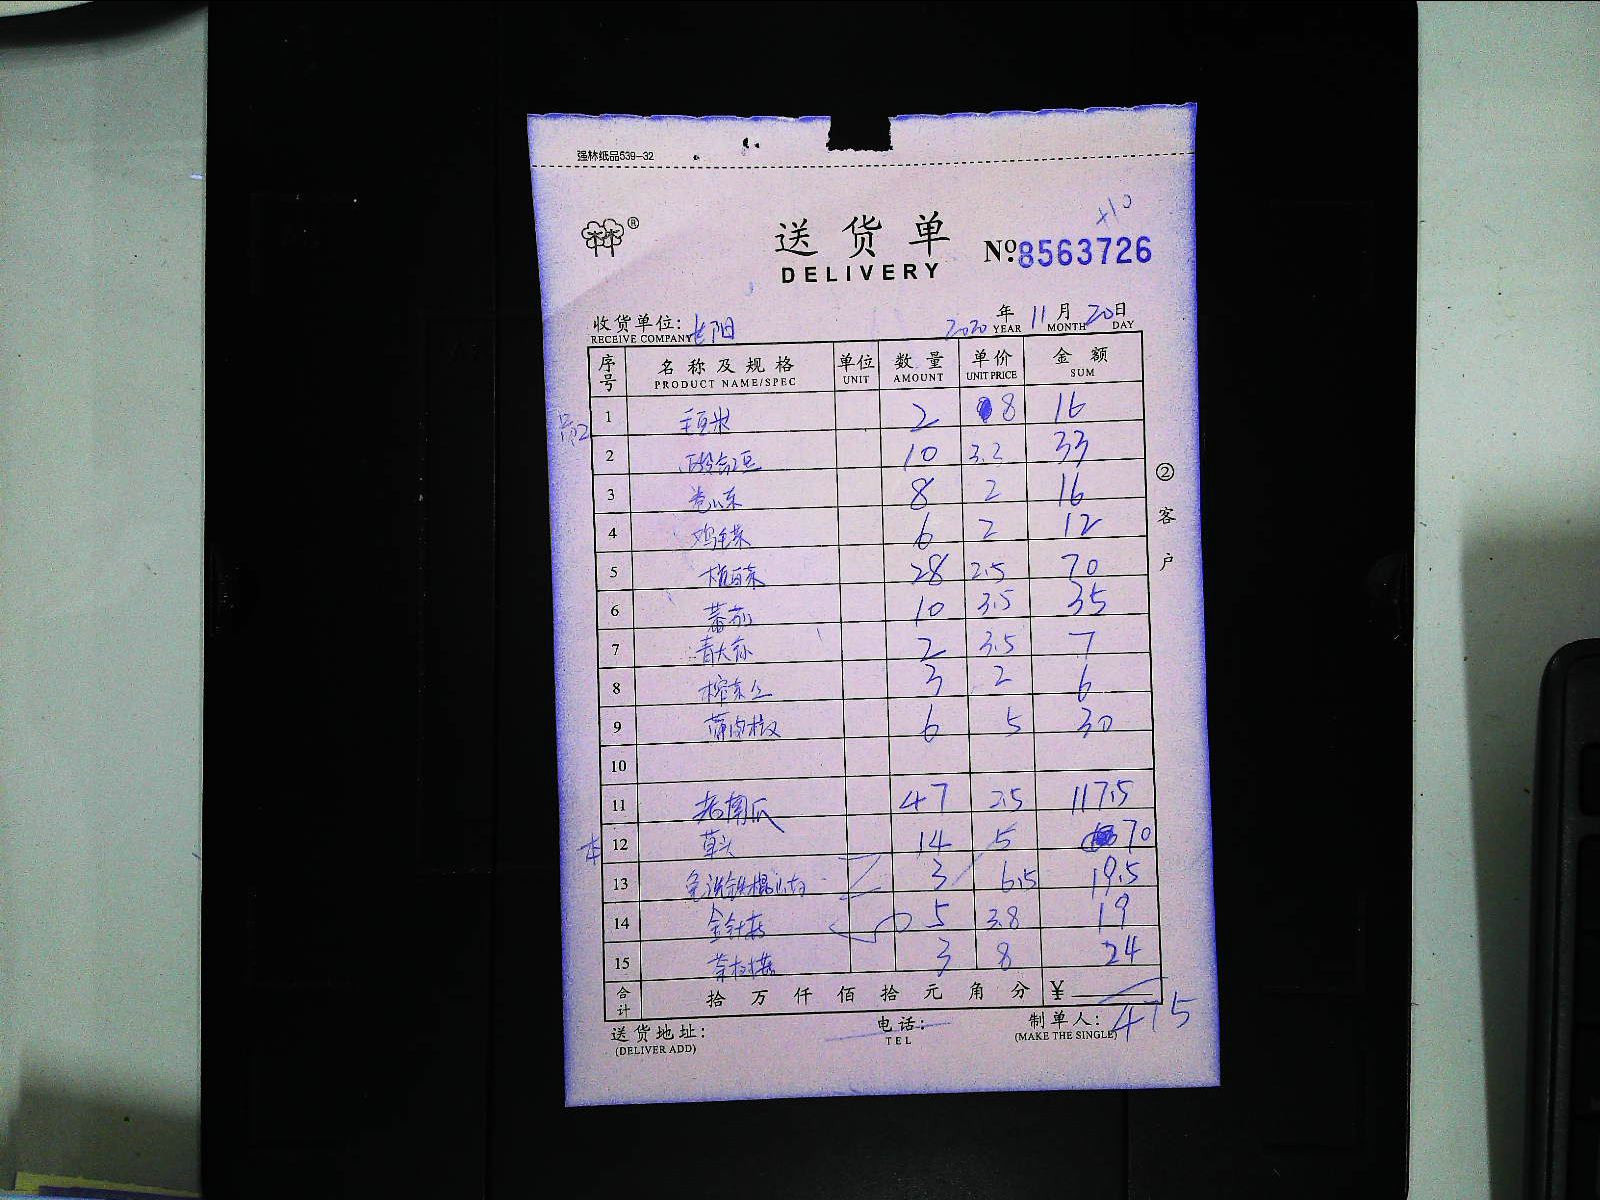 强林纸品539-32
×10
®
送货单
DELIVERY
Nº:8563726
收货单位: 2020 年 11 月 20 日
RECEIVE COMPANY YEAR MONTH DAY
序号 名称及规格 单位 数量 单价 金额
PRODUCT NAME/SPEC UNIT AMOUNT UNIT PRICE SUM
1 2 8 16
2 10 3.3 33
3 8 2 16
4 鸡毛菜 6 2 12
5 28 2.5 70
6 蕃茄 10 3.5 35
7 2 3.5 7
8 3 2 6
9 6 5 30
10
11 老南瓜 47 2.5 117.5
12 草头 14 5 70
13 3 6.5 19.5
14 金针菇 5 3.8 19
15 茶树菇 3 8 24
合计 拾万仟佰拾元角分 ¥ 475
送货地址: 电话: 制单人:
(DELIVER ADD) TEL (MAKE THE SINGLE)
②客户